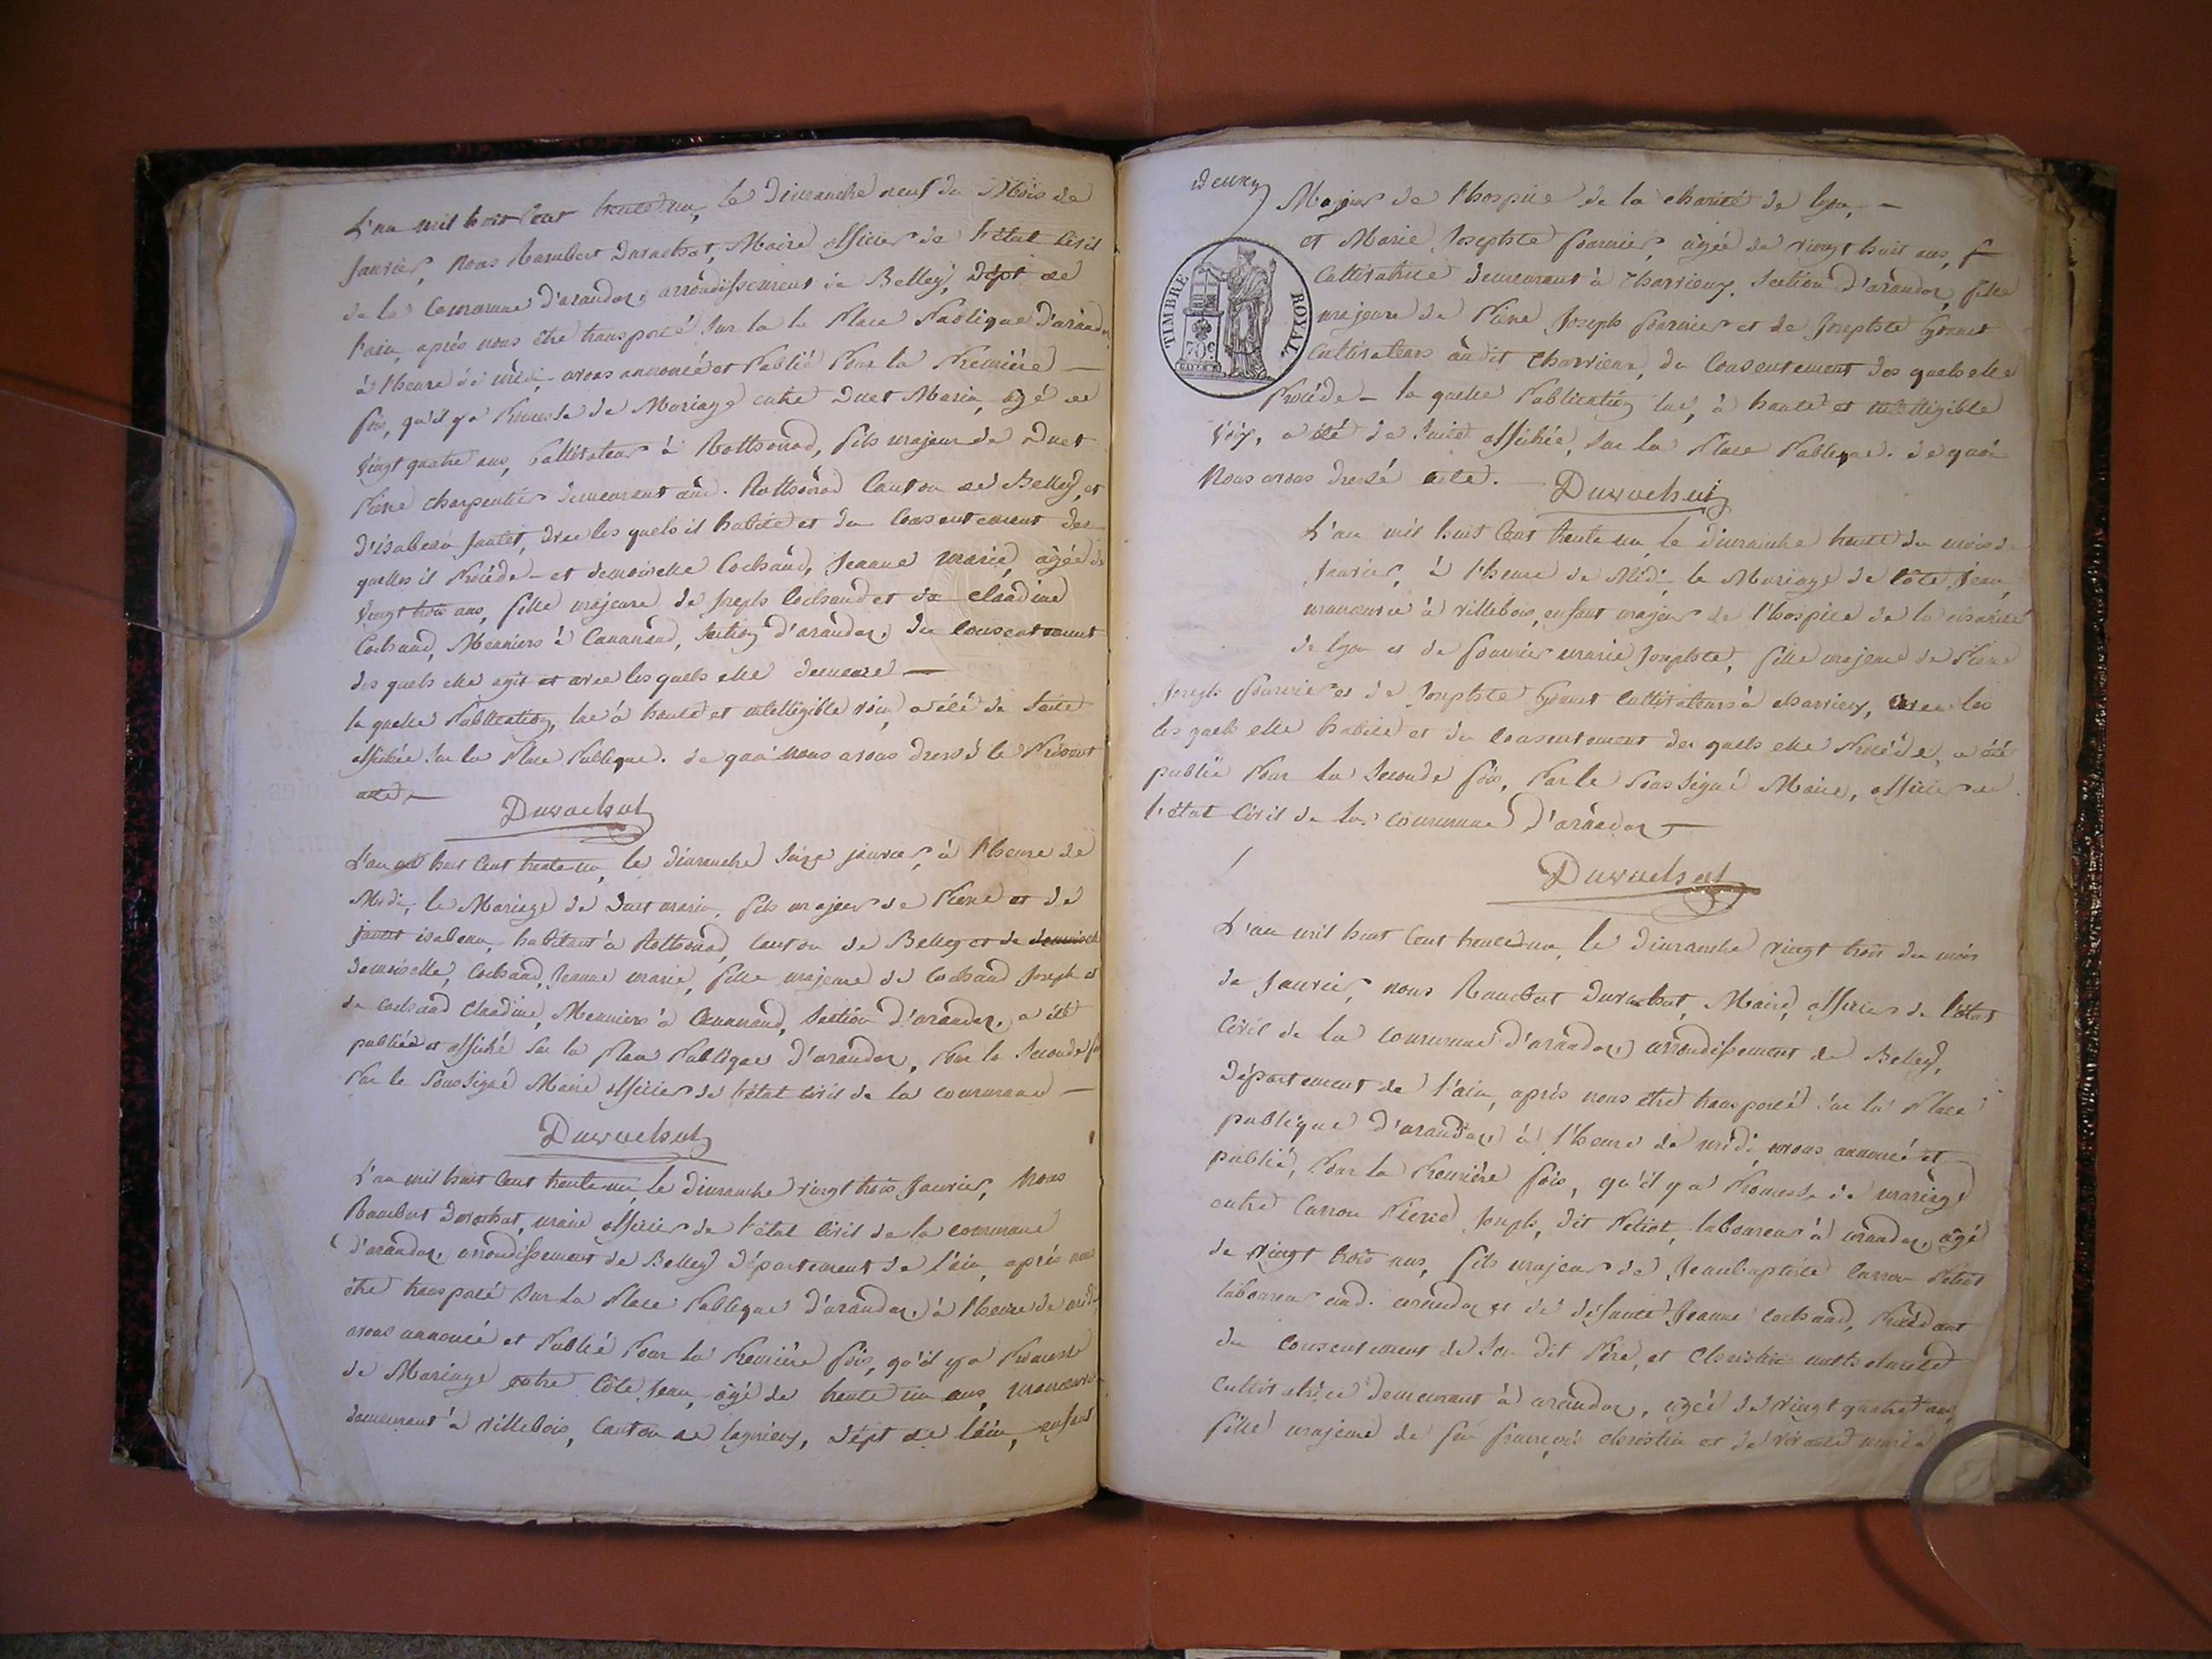 L'an mil huit Cent trente un, le Dimanche neuf du Mois de
Janvier, Nous Rambert Duvachat, Maire officier de l'état Civil
de la Commune d'arandas, arrondissement de Belley, Dépt de
l'ain, après nous être transporté sur la la Place Publique D'arandas
à l'heure de midi, avons annoncé et Publié Pour la Première —
fois, qu'il y a Promesse de Mariage entre Duet Marin, agé de
vingt quatre ans, Cultivateur à Rothonod, fils majeur de Duet
Pierre charpentier demeurant aud. Rothonod Canton de Belley, et
d'isabeau Jantet, avec les quels il habite et du Consentement des
quelles il Procède — et demoiselle Cochand, Jeanne Marie, agée de
vingt trois ans, fille majeure de Joseph Cochand et de claudine
Cochand, Meuniers à Cananand, Section d'arandas, du Consentement
des quels elle agit et avec les quels elle demeure —
la quelle Publication, lue à haute et intelligible voix, a été de suite
affichée sur la Place Publique. de quoi nous avons dressé le Présent
acte, —
Duvachat
L'an mil huit Cent trente un, le dimanche seize janvier, à l'heure de
Midi, le Mariage de Duet marin, fils majeur de Pierre et de
jantet isabeau, habitant à Rothonod, Canton de Belley et de demoiselle
demoiselle, Cochand, Jeanne marie, fille majeure de Cochand Joseph et
de cochand Claudine, Meuniers à Cananand, Section d'arandas, a été
publiée et affiché sur la Place Publique D'arandas, Pour la Seconde fois
Par le Soussigné Maire officier de l'état civil de la commune —
Duvachat
L'an mil huit Cent trente un, le dimanche vingt trois Janvier, Nous
Rambert Duvachat, maire officier de l'état Civil de la commune
d'arandas, arrondissement de Belley Département de l'ain, après nous
être transporté sur la Place Publique d'arandas, à l'heure de midi,
avons annoncé et Publié Pour la Première fois, qu'il y a Promesse
de Mariage entre Côte Jean, âgé de trente un ans, Manœuvre
demeurant à villebois, Canton de lagnieu, dépt de l'ain, enfant
TIMBRE ROYAL
70c
Majeur de l'hospice de la charité de lyon, —
et Marie Josephte fournier, agée de vingt huit ans,
Cultivatrice demeurant à Charvieux, Section d'arandas, fille
majeure de Pierre Joseph fournier et de Josephte
cultivateurs audit Charvieux, du Consentement des quels elle
Procède — la quelle Publication lue, à haute et intelligible
voix, a été de suite affichée, sur la Place Publique. de quoi
Nous avons dressé acte. — Duvachat
L'an mil huit Cent trente un, le dimanche trente du mois de
Janvier, à l'heure de Midi, le Mariage de Côte, Jean,
manœuvre à villebois, enfant majeur de l'hospice de la charité
de lyon et de fournier marie Josephte, fille majeure de Pierre
Joseph fournier et de Josephte cultivateurs à charvieux, avec les
les quels elle habite et du Consentement des quels elle Procède, a été
publié Pour la Seconde fois, Par le Soussigné Maire, officier de
l'état Civil de la commune D'arandas —
Duvachat
L'an mil huit Cent trente un, le dimanche vingt trois du mois
de Janvier, nous Rambert Duvachat, Maire, officier de l'état
Civil de la commune d'arandas, arrondissement de Belley,
Département de l'ain, après nous être transporté sur la Place
publique d'arandas, à l'heure de midi, avons annoncé et
publié, Pour la Première fois, qu'il y a Promesse de mariage
entre Carron Pierre Joseph, dit Petiot, laboureur à arandas, âgé
de vingt trois ans, fils majeur de Jeanbaptiste Carron Petiot
laboureur aud. arandas et de défunte Jeanne cochand, Procédant
du consentement de Son dit Père, et Christin
Cultivatrice demeurant à arandas, agée de vingt quatre ans,
fille majeure de feu françois christin et de vivante marie